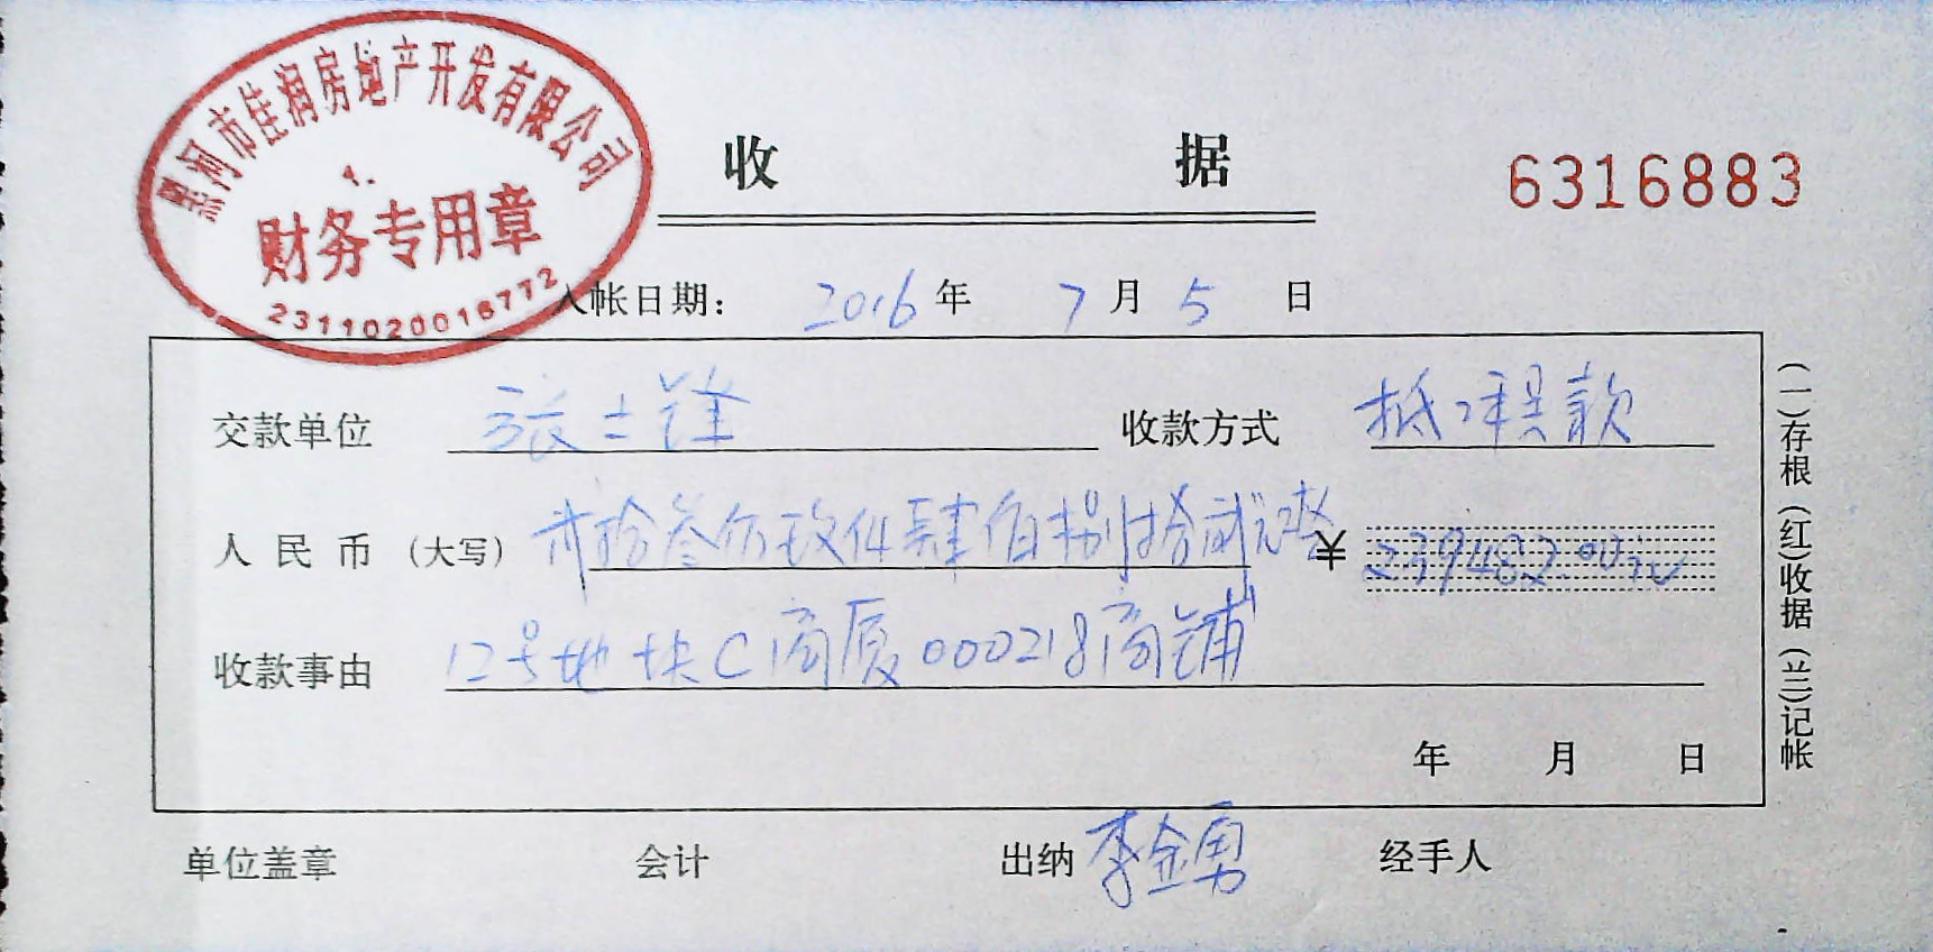 黑河市佳润房地产开发有限公司
财务专用章
2311020016772
收 据
6316883
入帐日期： 2016 年 7 月 5 日
交款单位 张士锋 收款方式 抵工程款
人民币（大写） 贰拾叁万玖仟肆佰捌拾贰元整 ¥ 239482.00元
收款事由 12号地块C商厦000218商铺
年 月 日
(一)存根 (红)收据 (三)记帐
单位盖章 会计 出纳 李金勇 经手人